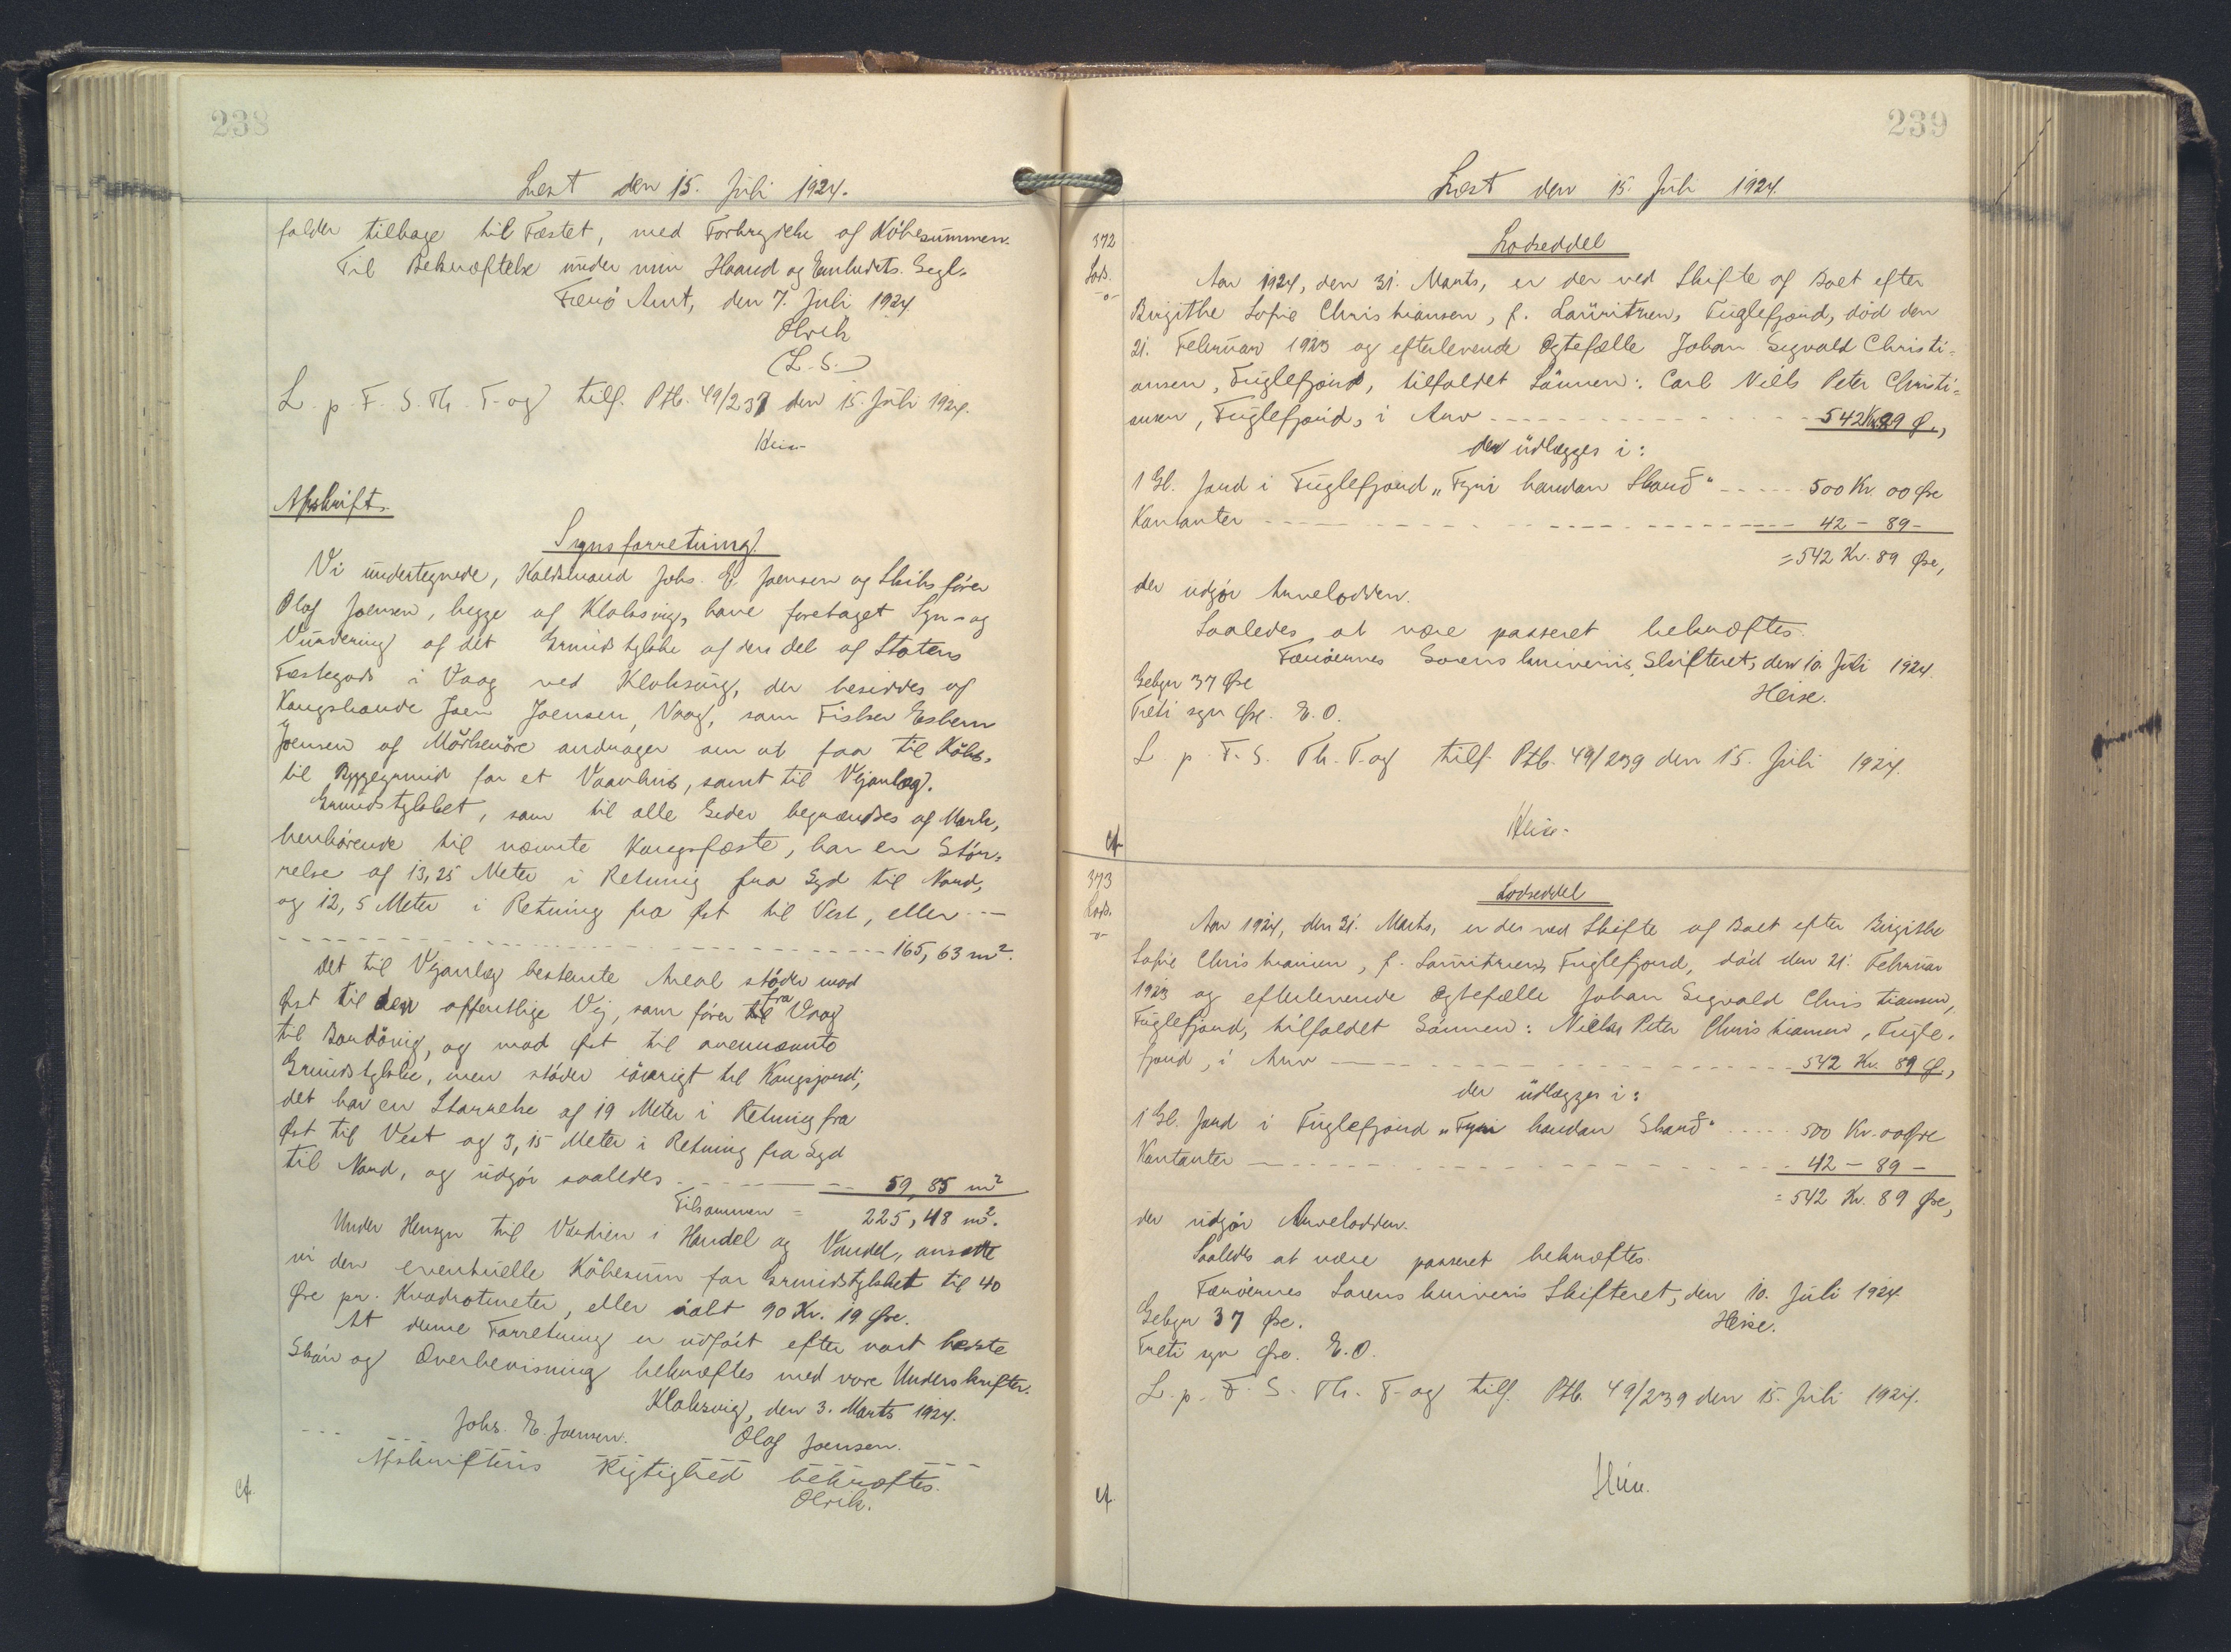 238
Læst den 15. Juli 1924.
falder tilbage til Fæstet, med Forbrydelse af Köbesummen.
Til Bekræftelse under min Haand og Embedets Segl.
Færö Amt, den 7. Juli 1924.
Olrik
(L. S.)
L. p. F. S. Th. T. og tilf. Ptb. 49/237 den 15. Juli 1924.
Heise
Afskrift.
Synsforretning.
Vi undertegnede, Kaldsmand Johs. E. Joensen og Skibsförer
Olaf Joensen, begge af Klaksvig, have foretaget Syn- og
Vurdering af det Grundstykke af den del af Statens
Fæstegods i Vaag ved Klaksvig, der besiddes af
Kongsbonde Joen Joensen, Vaag, som Fisker Esbern
Joensen af Mörkenöre andrager om at faa til Köbs,
til Byggegrund for et Vaanhus, samt til Vejanlæg.
Grundstykket, som til alle Sider begrændses af Mark,
henhörende til nævnte Kongsfæste, har en Stör-
relse af 13,25 Meter i Retning fra Syd til Nord,
og 12,5 Meter i Retning fra Öst til Vest, eller ---
165,63 m².
Det til Vejanlæg bestemte Areal stöder mod
Öst til den offentlige Vej, som förer til fra Vaag
til Bordövig, og mod Öst til ovennævnte
Grundstykke, men stöder iövrigt til Kongsjord;
det har en Störrelse af 19 Meter i Retning fra
Öst til Vest og 3,15 Meter i Retning fra Syd
til Nord, og udgör saaledes --- 59,85 m²
Tilsammen = 225,48 m².
Under Hensyn til Værdien i Handel og Vandel, ansætte
vi den eventuelle Köbesum for Grundstykket til 40
Øre pr. Kvadratmeter, eller ialt 90 Kr. 19 Øre.
At denne Forretning er udfört efter vort bedste
Skön og Overbevisning bekræftes med vore Underskrifter.
Klaksvig, den 3. Marts 1924.
Johs. E. Joensen. Olaf Joensen.
Afskriftens Rigtighed bekræftes.
Olrik.
cf.
239
Læst den 15. Juli 1924.
372
Lods.
-o-
Lodseddel
Aar 1924, den 31. Marts, er der ved Skifte af Boet efter
Birgithe Sofie Christiansen, f. Lauritzen, Fuglefjord, död den
21. Februar 1923 og efterlevende Ægtefælle Johan Sigvald Christi-
ansen, Fuglefjord, tilfaldet Sönnen: Carl Niels Peter Christi-
ansen, Fuglefjord, i Arv --- 542 Kr. 89 Ø.,
der udlægges i:
1 Gl. Jord i Fuglefjord „Fyri handan Skarð" --- 500 Kr. 00 Øre
Kontanter --- 42 - 89 -
= 542 Kr. 89 Øre,
der udgör Arvelodden.
Saaledes at være passeret bekræftes.
Færöernes Sorenskriveris Skifteret, den 10. Juli 1924.
Heise.
Gebyr 37 Øre
Treti syv Øre. E. O.
L. p. F. S. Th. T. og tilf. Ptb. 49/239 den 15. Juli 1924.
Heise
cf.
373
Lods.
-o-
Lodseddel
Aar 1924, den 31. Marts, er der ved Skifte af Boet efter Birgithe
Sofie Christiansen, f. Lauritzen, Fuglefjord, död den 21. Februar
1923 og efterlevende Ægtefælle Johan Sigvald Christiansen,
Fuglefjord, tilfaldet Sönnen: Niels Peter Christiansen, Fugle-
fjord, i Arv --- 542 Kr. 89 Ø.,
der udlægges i:
1 Gl. Jord i Fuglefjord „Fyri handan Skarð" --- 500 Kr. 00 Øre
Kontanter --- 42 - 89 -
= 542 Kr. 89 Øre,
der udgör Arvelodden.
Saaledes at være passeret bekræftes.
Færöernes Sorenskriveris Skifteret, den 10. Juli 1924.
Heise.
Gebyr 37 Øre.
Treti syv Øre. E. O.
L. p. F. S. Th. T. og tilf. Ptb. 49/239 den 15. Juli 1924.
Heise.
cf.